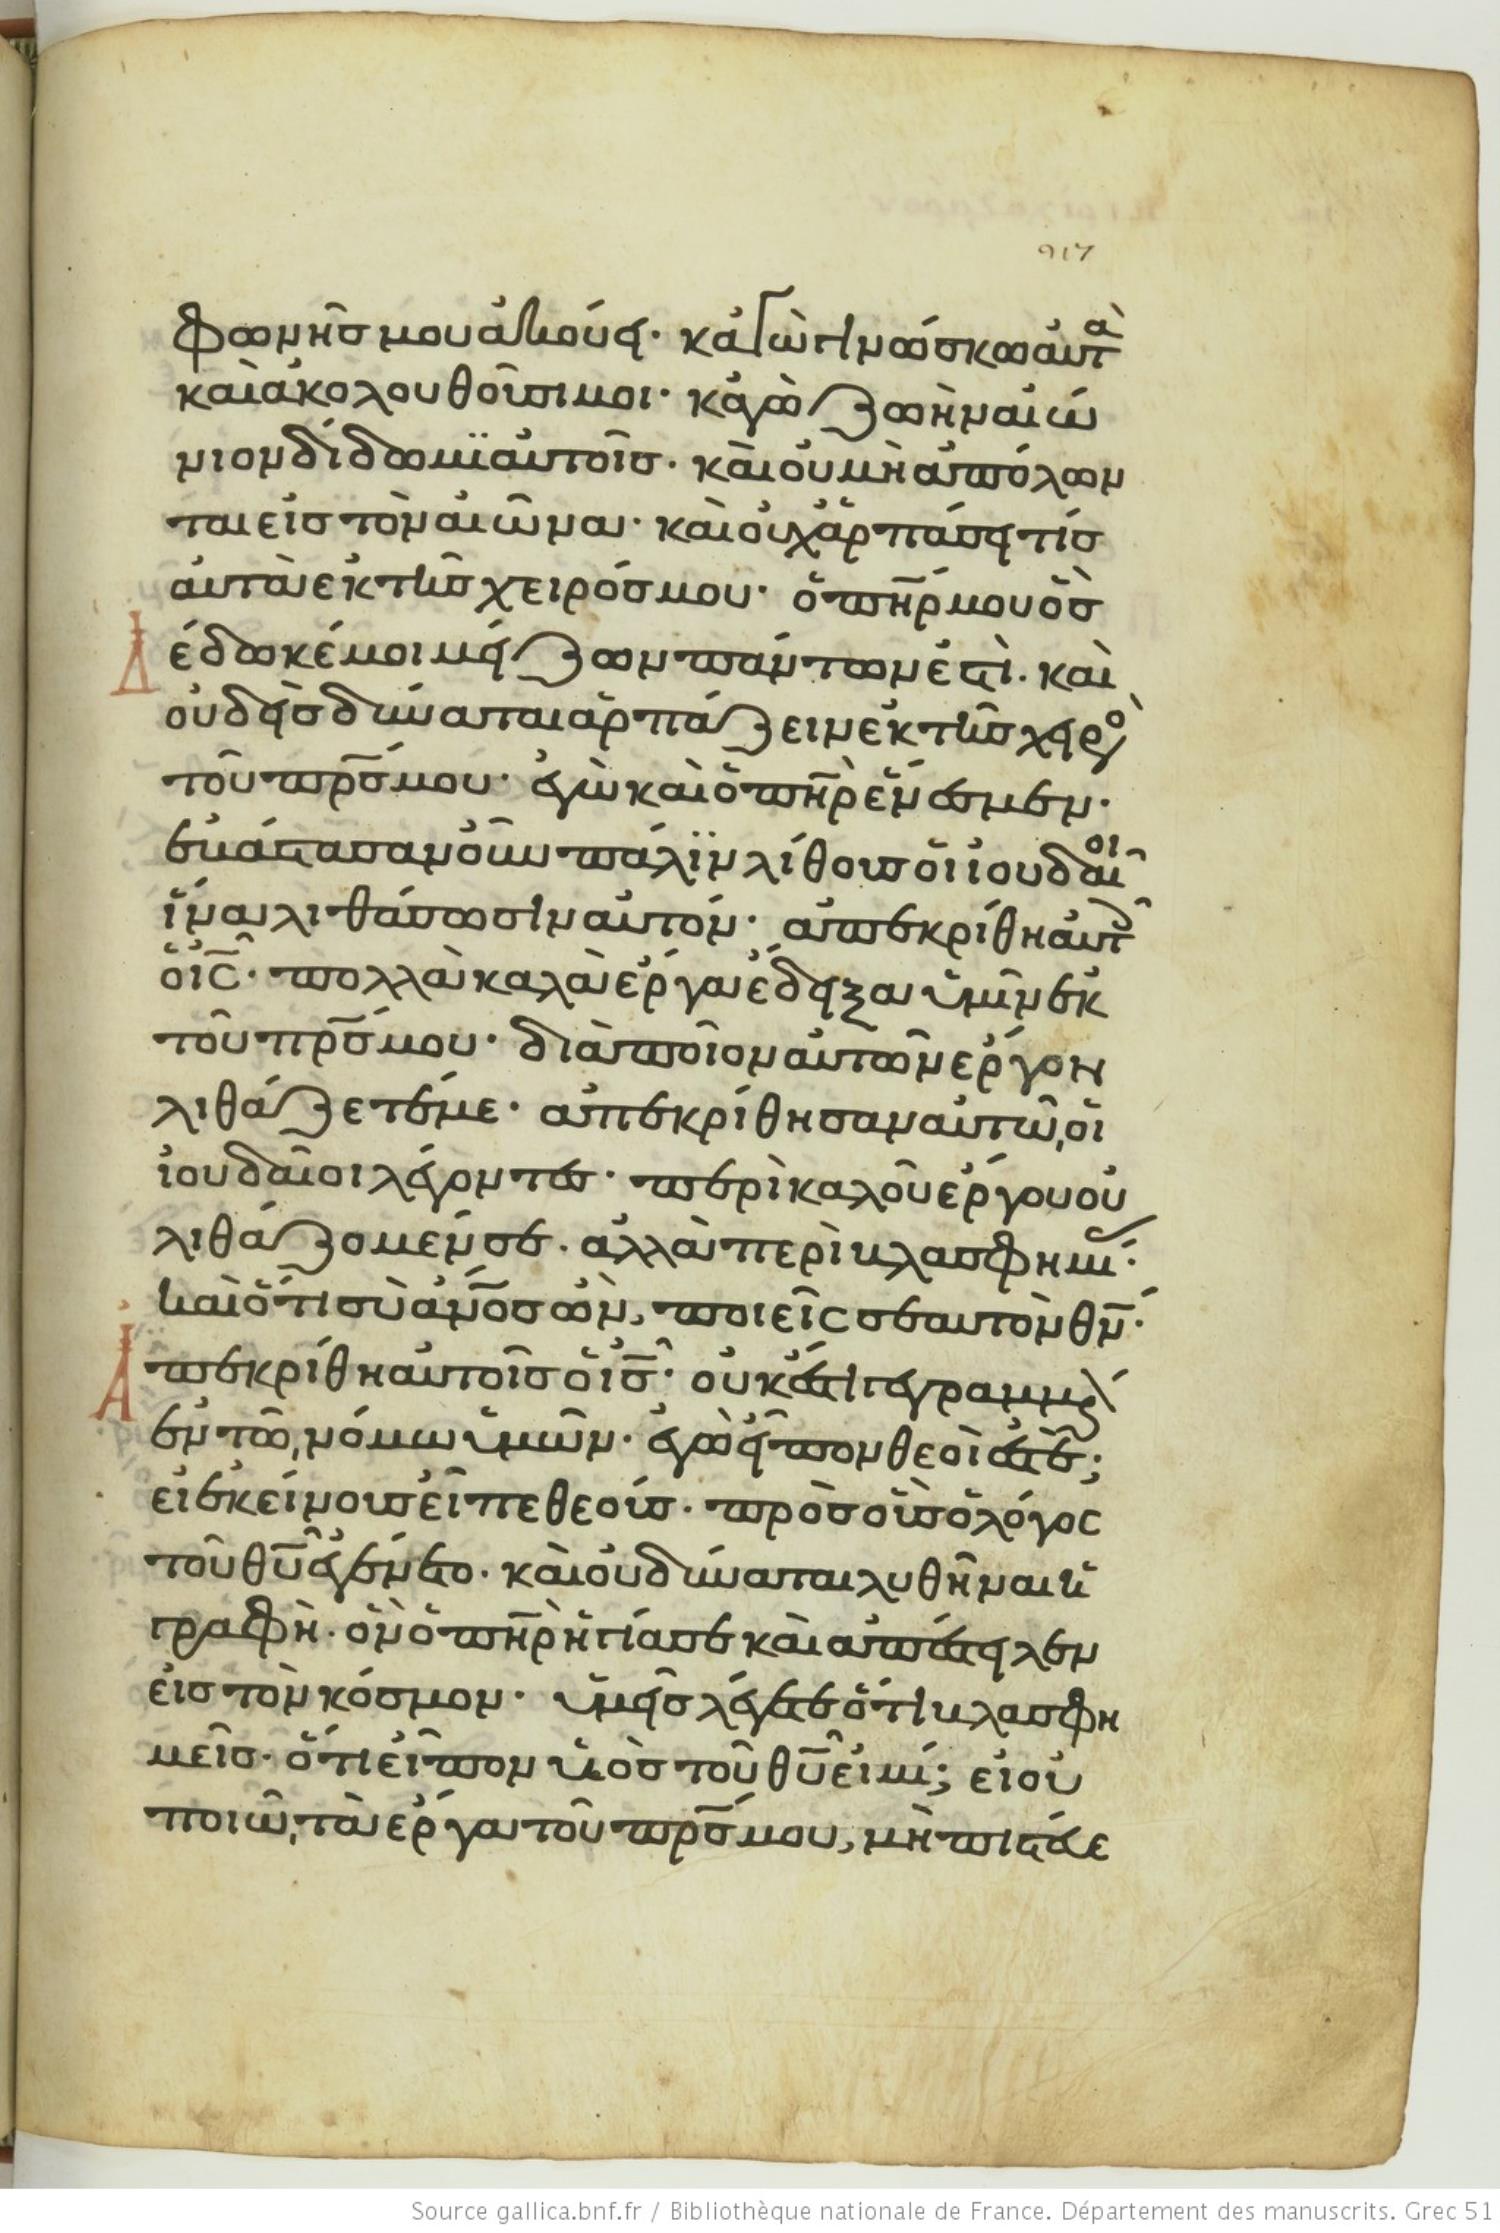 217
φωνῆς μου ἀκούει· κἀγὼ γινώσκω αὐτὰ
καὶ ἀκολουθοῦσι μοι· κἀγὼ ζωὴν αἰώ
νιον δίδωμϊ αὐτοῖς· καὶ οὐ μὴ ἀπόλων
ται εἰς τὸν αἰῶνα· καὶ οὐχ ἁρπάσει τίς
αὐτὰ ἐκ τῆς χειρός μου· ὁ πῆρ μου ὃς
ἔδωκέ μοι μείζων πάντων ἐστὶ· καὶ
οὐδεὶς δύναται ἁρπάζειν ἐκ τῆς χειρὸ
τοῦ πρς μου· ἐγὼ καὶ ὁ πῆρ ἕν ἐσμεν·
ἐβάστασαν οὖν πάλϊν λίθους οἱ ἰουδαῖοι
ἵνα λιθάσωσιν αὐτόν· ἀπεκρίθη αὐτ
ὁ ις· πολλὰ καλὰ ἔργα ἔδειξα ὑμῖν ἐκ
τοῦ πρς μου· διὰ ποῖον αὐτῶν ἔργον
λιθάζετέ με· ἀπεκρίθησαν αὐτῶ, οἱ
ἰουδαῖοι λέγοντες· περὶ καλοῦ ἔργου οὐ
λιθάζομέν σε· ἀλλὰ περὶ βλασφημί·
καὶ ὅτι σὺ ανος ὢν, ποιεῖς σεαυτὸν θν·
Ἀπεκρίθη αὐτοῖς ὁ ις· οὐκ ἔστι γεγραμμ
ἐν τῶ, νόμω ὑμῶν· ἐγὼ εἶπον θεοὶ ἐστὲ;
εἰ ἐκείνους εἶπε θεούς· πρὸς οὓς ὁ λόγος
τοῦ θυ ἐγένετο· καὶ οὐ δύναται λυθῆναι ἡ
γραφὴ· ὃν ὁ πῆρ ἡγίασε καὶ ἀπέστειλεν
εἰς τὸν κόσμον· ὑμεῖς λέγετε ὅτι βλασφη
μεῖς· ὅτι εἶπον υἱὸς τοῦ θυ εἰμί; εἰ οὐ
ποιῶ, τὰ ἔργα τοῦ πρς μου, μὴ πιστεύετε
Source gallica.bnf.fr / Bibliothèque nationale de France. Département des manuscrits. Grec 51